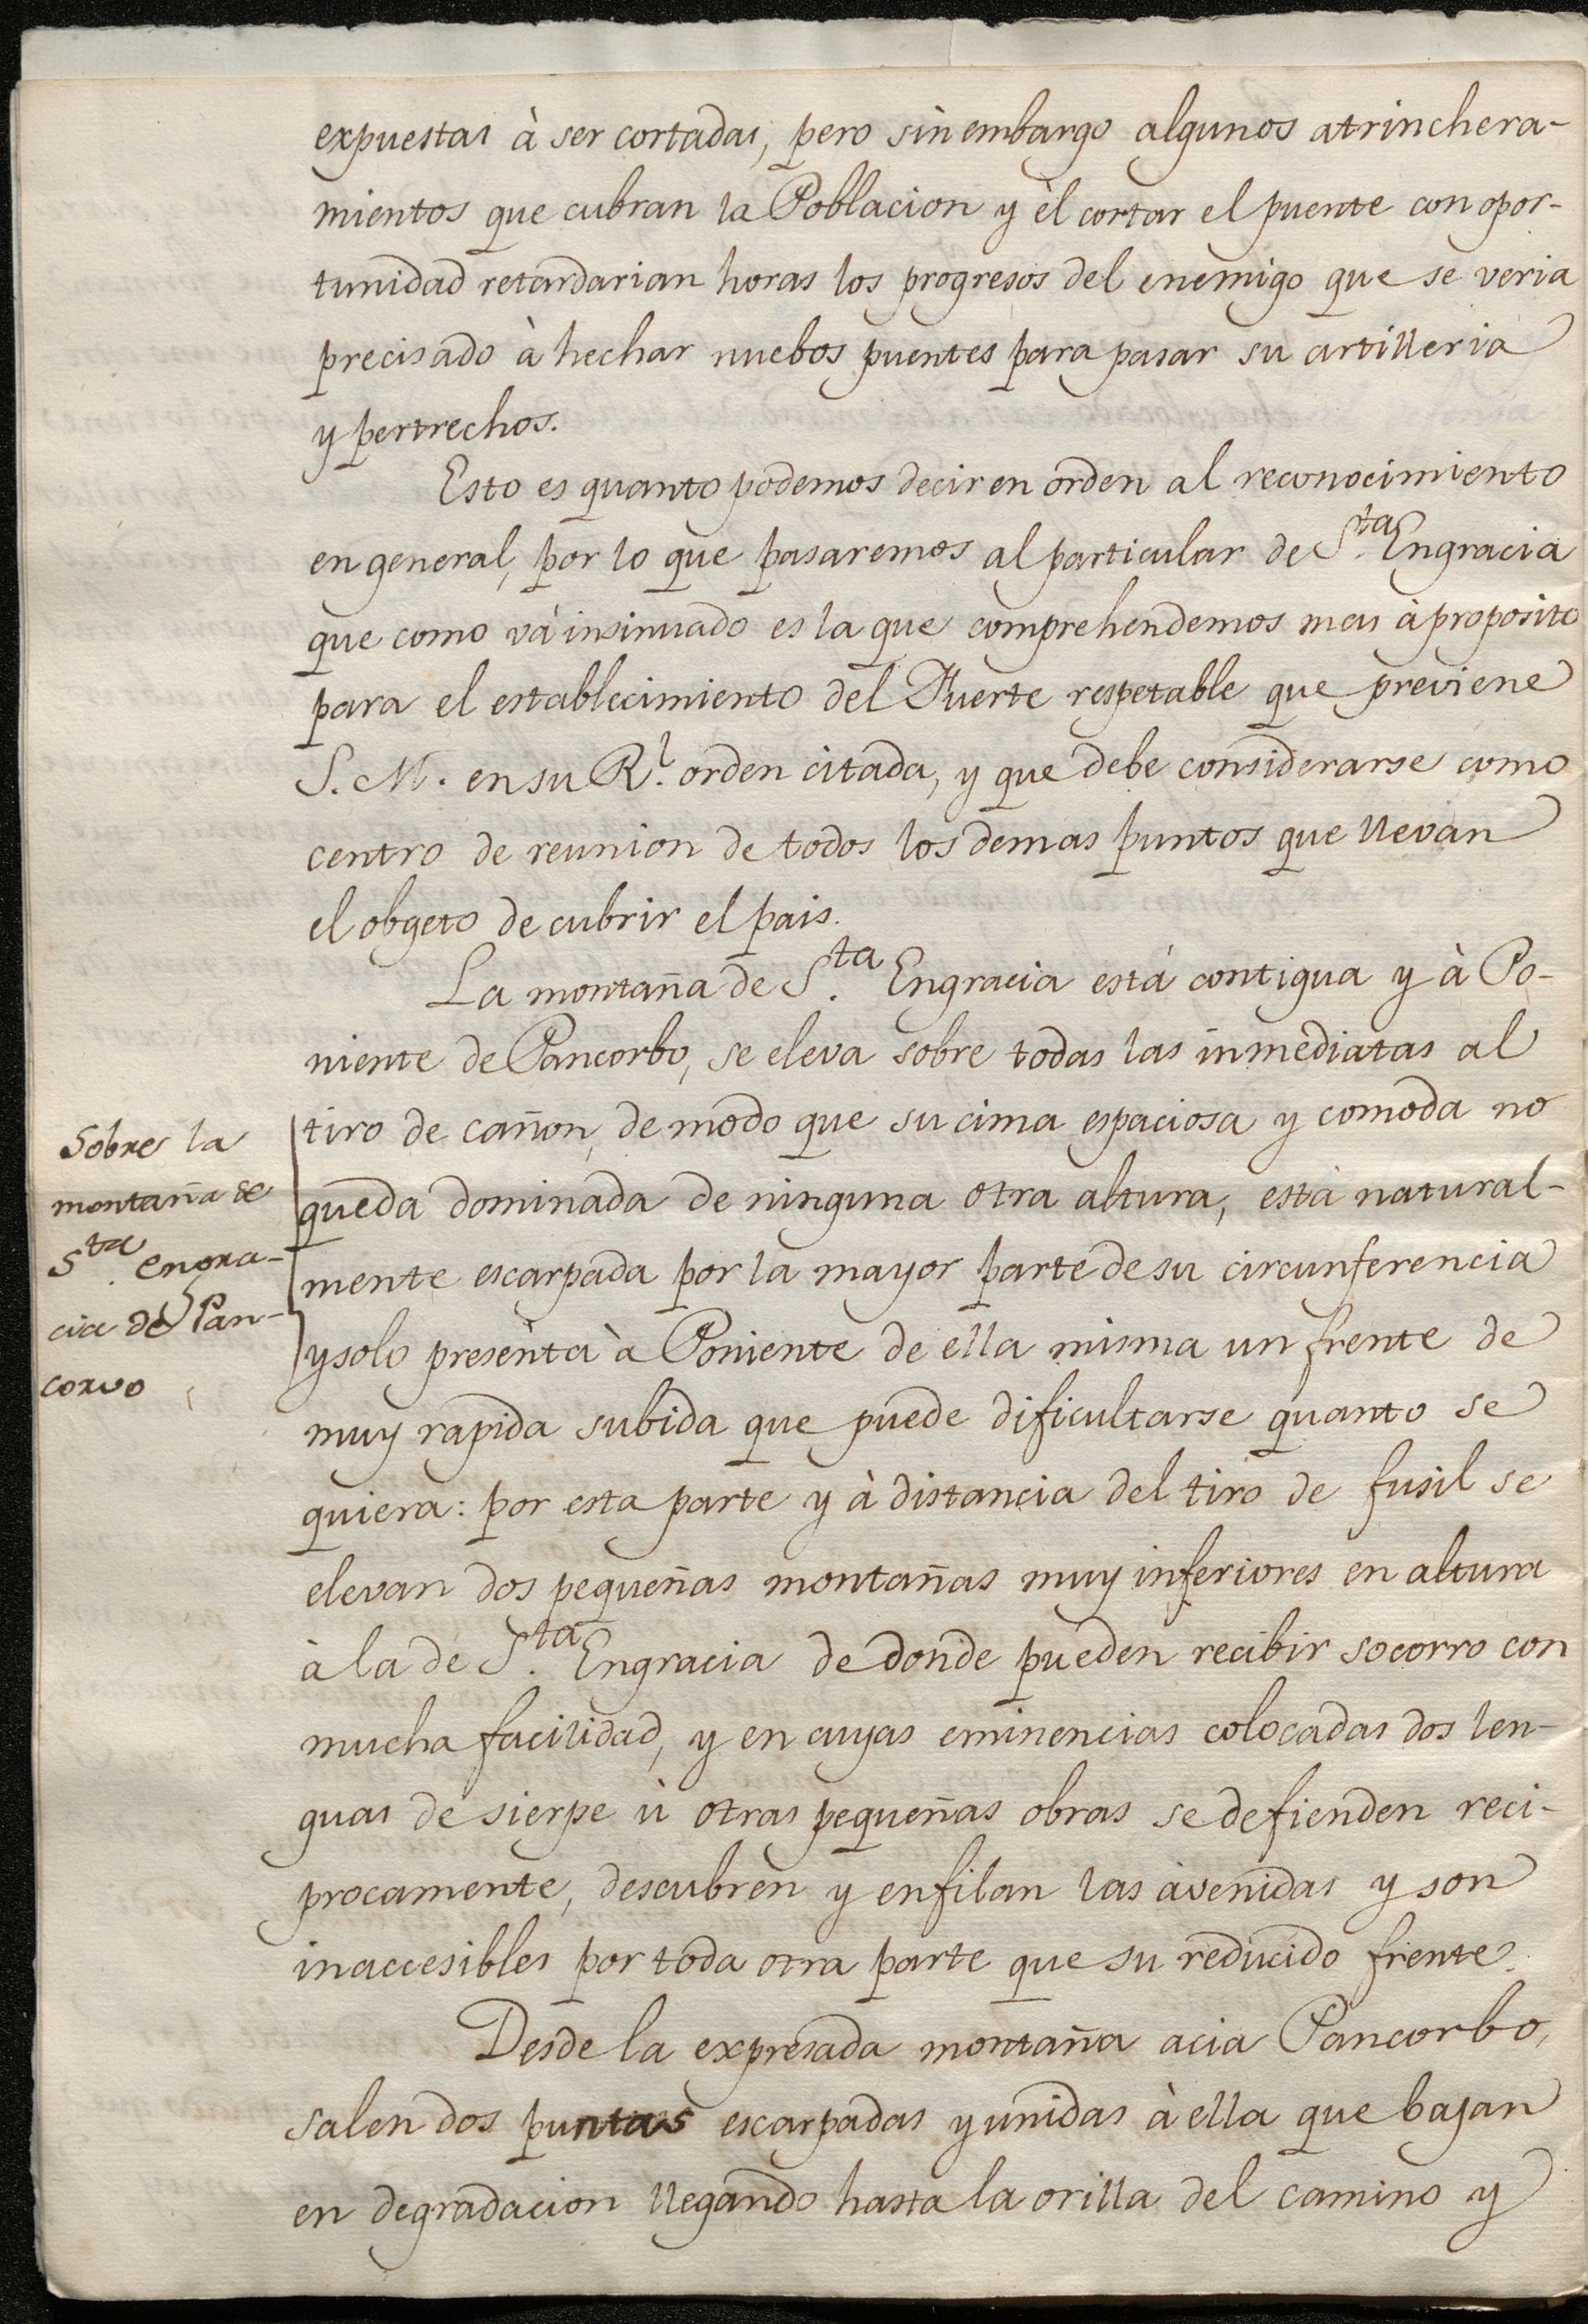 expuestas à ser cortadas, pero sin embargo algunos atrinchera-
mientos que cubran la Poblacion y èl cortar el puente con opor-
tunidad retardarian horas los progresos del enemigo que se veria
precisado à hechar nuebos puentes para pasar su artilleria
y pertrechos.
Esto es quanto podemos decir en orden al reconocimiento
en general, por lo que pasaremos al particular de S.ta Engracia
que como vá insinuado es la que comprehendemos mas à proposito
para el establecimiento del Fuerte respetable que previene
S. M. en su R.l orden citada, y que debe considerarse como
centro de reunion de todos los demas puntos que llevan
el obgeto de cubrir el pais.
La montaña de S.ta Engracia está contigua y à Po-
niente de Pancorbo, se eleva sobre todas las inmediatas al
tiro de cañon, de modo que su cima espaciosa y comoda no
queda dominada de ninguna otra altura, està natural-
mente escarpada por la mayor parte de su circunferencia
y solo presenta à Poniente de ella misma un frente de
muy rapida subida que puede dificultarse quanto se
quiera: por esta parte y à distancia del tiro de fusil se
elevan dos pequeñas montañas muy inferiores en altura
à la de S.ta Engracia de donde pueden recibir socorro con
mucha facilidad, y en cuyas eminencias colocadas dos len-
guas de sierpe ù otras pequeñas obras se defienden reci-
procamente, descubren y enfilan las avenidas y son
inaccesibles por toda otra parte que su reducido frente.
Desde la expresada montaña acia Pancorbo,
salen dos puntas escarpadas y unidas à ella que bajan
en degradacion llegando hasta la orilla del camino y
Sobre la
montaña de
S.ta engra-
cia de Pan-
corvo